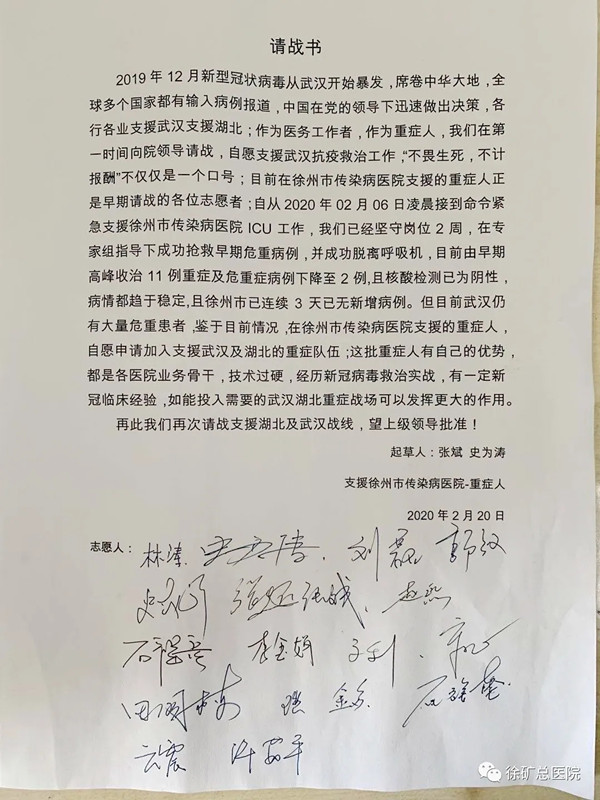 请战书
2019 年 12 月新型冠状病毒从武汉开始暴发，席卷中华大地，全
球多个国家都有输入病例报道，中国在党的领导下迅速做出决策，各
行各业支援武汉支援湖北；作为医务工作者，作为重症人，我们在第
一时间向院领导请战，自愿支援武汉抗疫救治工作，“不畏生死，不计
报酬”不仅仅是一个口号；目前在徐州市传染病医院支援的重症人正
是早期请战的各位志愿者；自从 2020 年 02 月 06 日凌晨接到命令紧
急支援徐州市传染病医院 ICU 工作，我们已经坚守岗位 2 周，在专
家组指导下成功抢救早期危重病例，并成功脱离呼吸机，目前由早期
高峰收治 11 例重症及危重症病例下降至 2 例,且核酸检测已为阴性，
病情都趋于稳定,且徐州市已连续 3 天已无新增病例。但目前武汉仍
有大量危重患者，鉴于目前情况，在徐州市传染病医院支援的重症人，
自愿申请加入支援武汉及湖北的重症队伍；这批重症人有自己的优势，
都是各医院业务骨干，技术过硬，经历新冠病毒救治实战，有一定新
冠临床经验，如能投入需要的武汉湖北重症战场可以发挥更大的作用。
再此我们再次请战支援湖北及武汉战线，望上级领导批准！
起草人：张斌 史为涛
支援徐州市传染病医院-重症人
2020 年 2 月 20 日
志愿人： 林津 刘磊
李金娟
云震 许安平
徐矿总医院